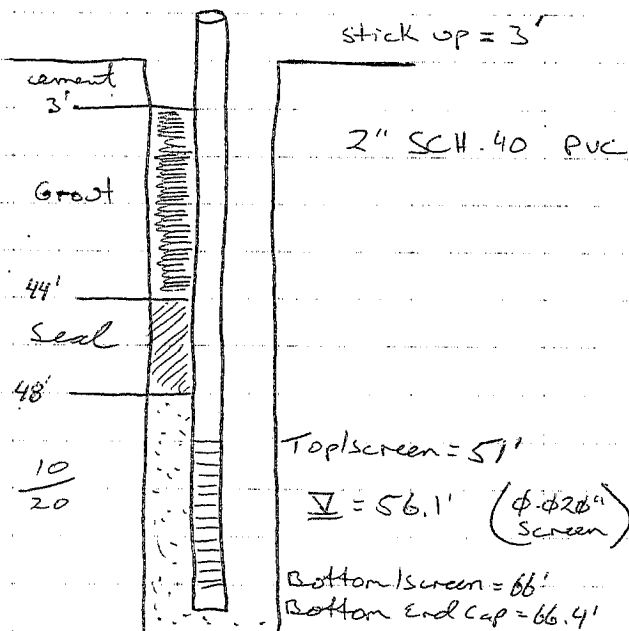 stick up = 3'
cement
3'
2" SCH.40 PVC
Grout
44'
Seal
48'
Top/screen = 51'
10
20
V = 56.1' (0.020" Screen)
Bottom/screen = 66'
Bottom End Cap = 66.4'